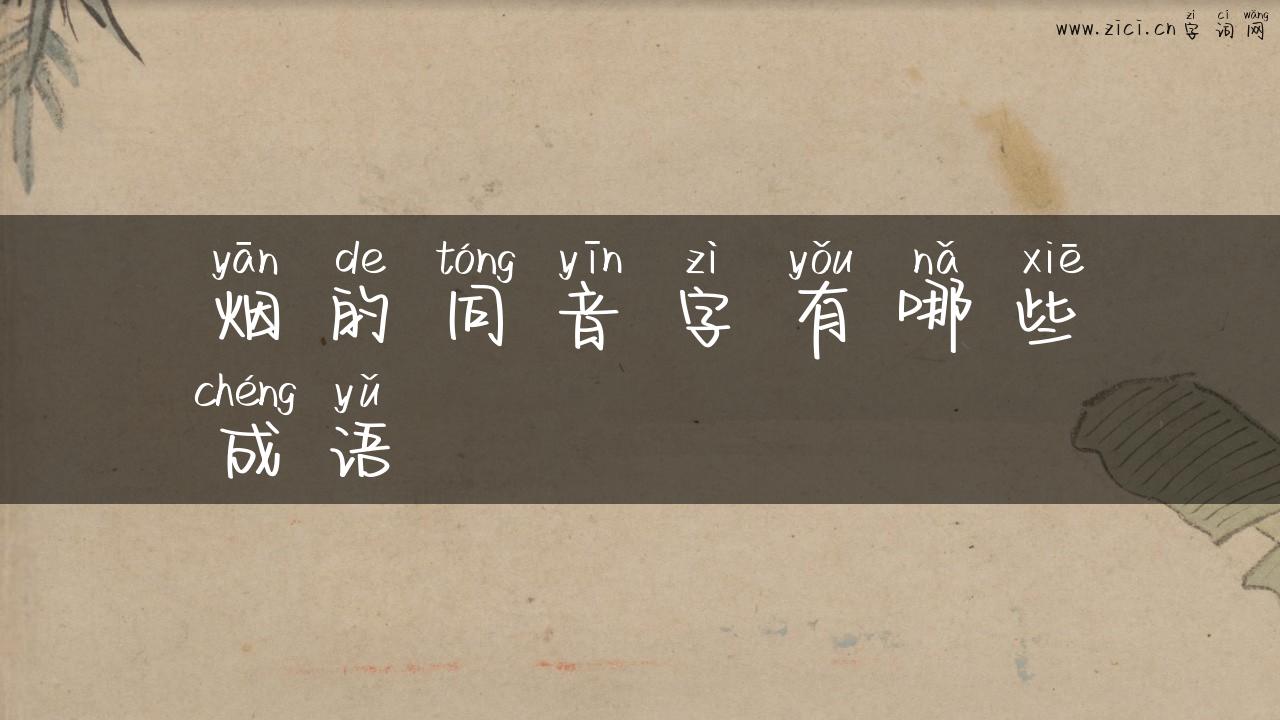 zì cí wǎng
www.zici.cn 字词网
yān de tóng yīn zì yǒu nǎ xiē
烟的同音字有哪些
chéng yǔ
成语